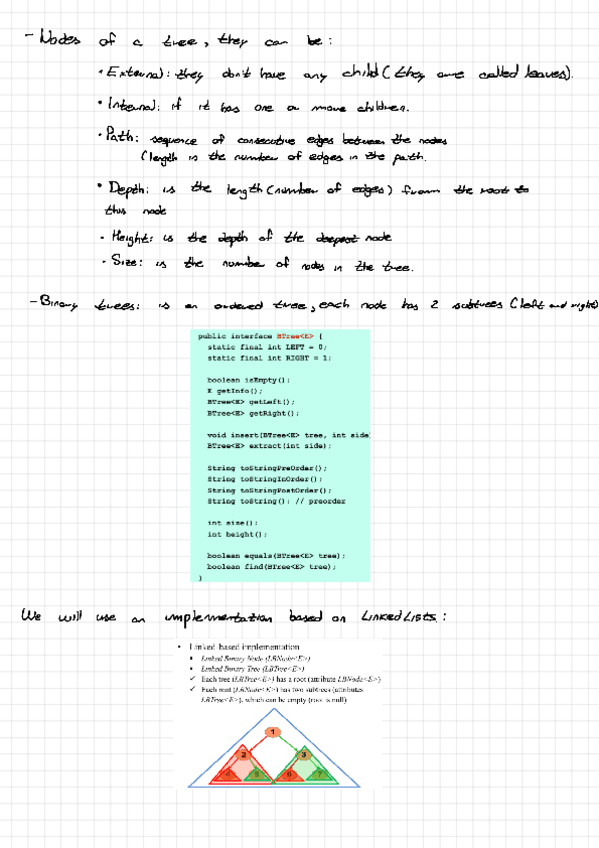 - Nodes of a tree, they can be:
• External: they don't have any child (they are called leaves).
• Internal: if it has one or more children.
• Path: sequence of consecutive edges between the nodes
(length is the number of edges in the path.
• Depth: is the length (number of edges) from the root to
this node
- Height: is the depth of the deepest node
• Size: is the number of nodes in the tree.
- Binary trees: is an ordered tree, each node has 2 subtrees (left and right)
public interface BTree<E> {
static final int LEFT = 0;
static final int RIGHT = 1;
boolean isEmpty();
E getInfo();
BTree<E> getLeft();
BTree<E> getRight();
void insert(BTree<E> tree, int side
BTree<E> extract(int side);
String toStringPreOrder();
String toStringInOrder();
String toStringPostOrder();
String toString(); // preorder
int size();
int height();
boolean equals(BTree<E> tree);
boolean find(BTree<E> tree);
}
We will use an implementation based on LinkedLists:
• Linked-based implementation
• Linked Binary Node (LBNode<E>)
• Linked Binary Tree (LBTree<E>)
✓ Each tree (LBTree<E>) has a root (attribute LBNode<E>)
✓ Each root (LBNode<E>) has two subtrees (attributes
LBTree<E>), which can be empty (root is null)
1
2 3
4 5 6 7